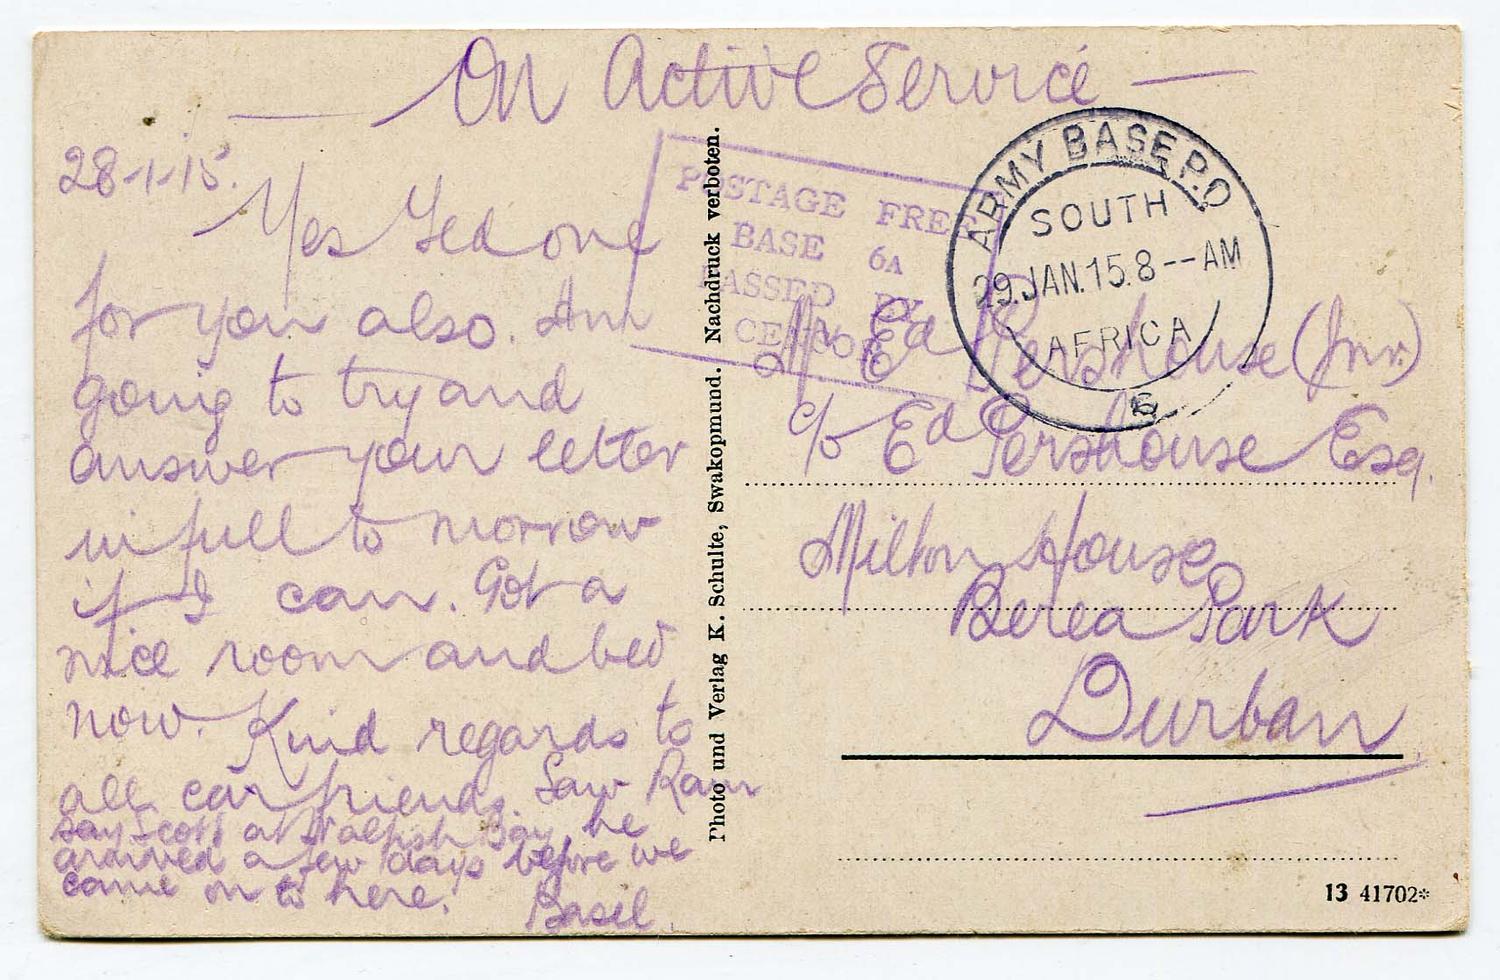 On Active Service
28-1-15.
Yes Ged one
for you also. Am
going to try and
answer your letter
in full to morrow
if I can. Got a
nice room and bed
now. Kind regards to
all car friends. Saw Ram
say Scott at Walfish Bay, he
arrived a few days before we
came on to here.
Basil.
Photo und Verlag K. Schulte, Swakopmund. Nachdruck verboten.
POSTAGE FREE
BASE 6A
PASSED BY
CENSOR
ARMY BASE P.O
SOUTH
29.JAN.15.8--AM
AFRICA
6
Mr Ed Pershouse (Jnr.)
c/o Ed Pershouse Esq.
Milton House
Berea Park
Durban
13 41702*